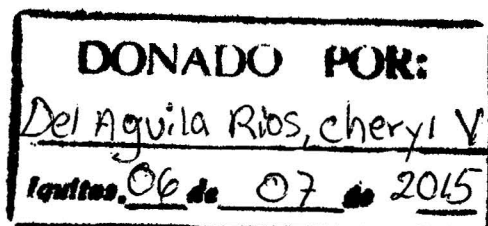 DONADO POR:
Del Aguila Rios, cheryl V
Iquitos, 06 de 07 de 2015